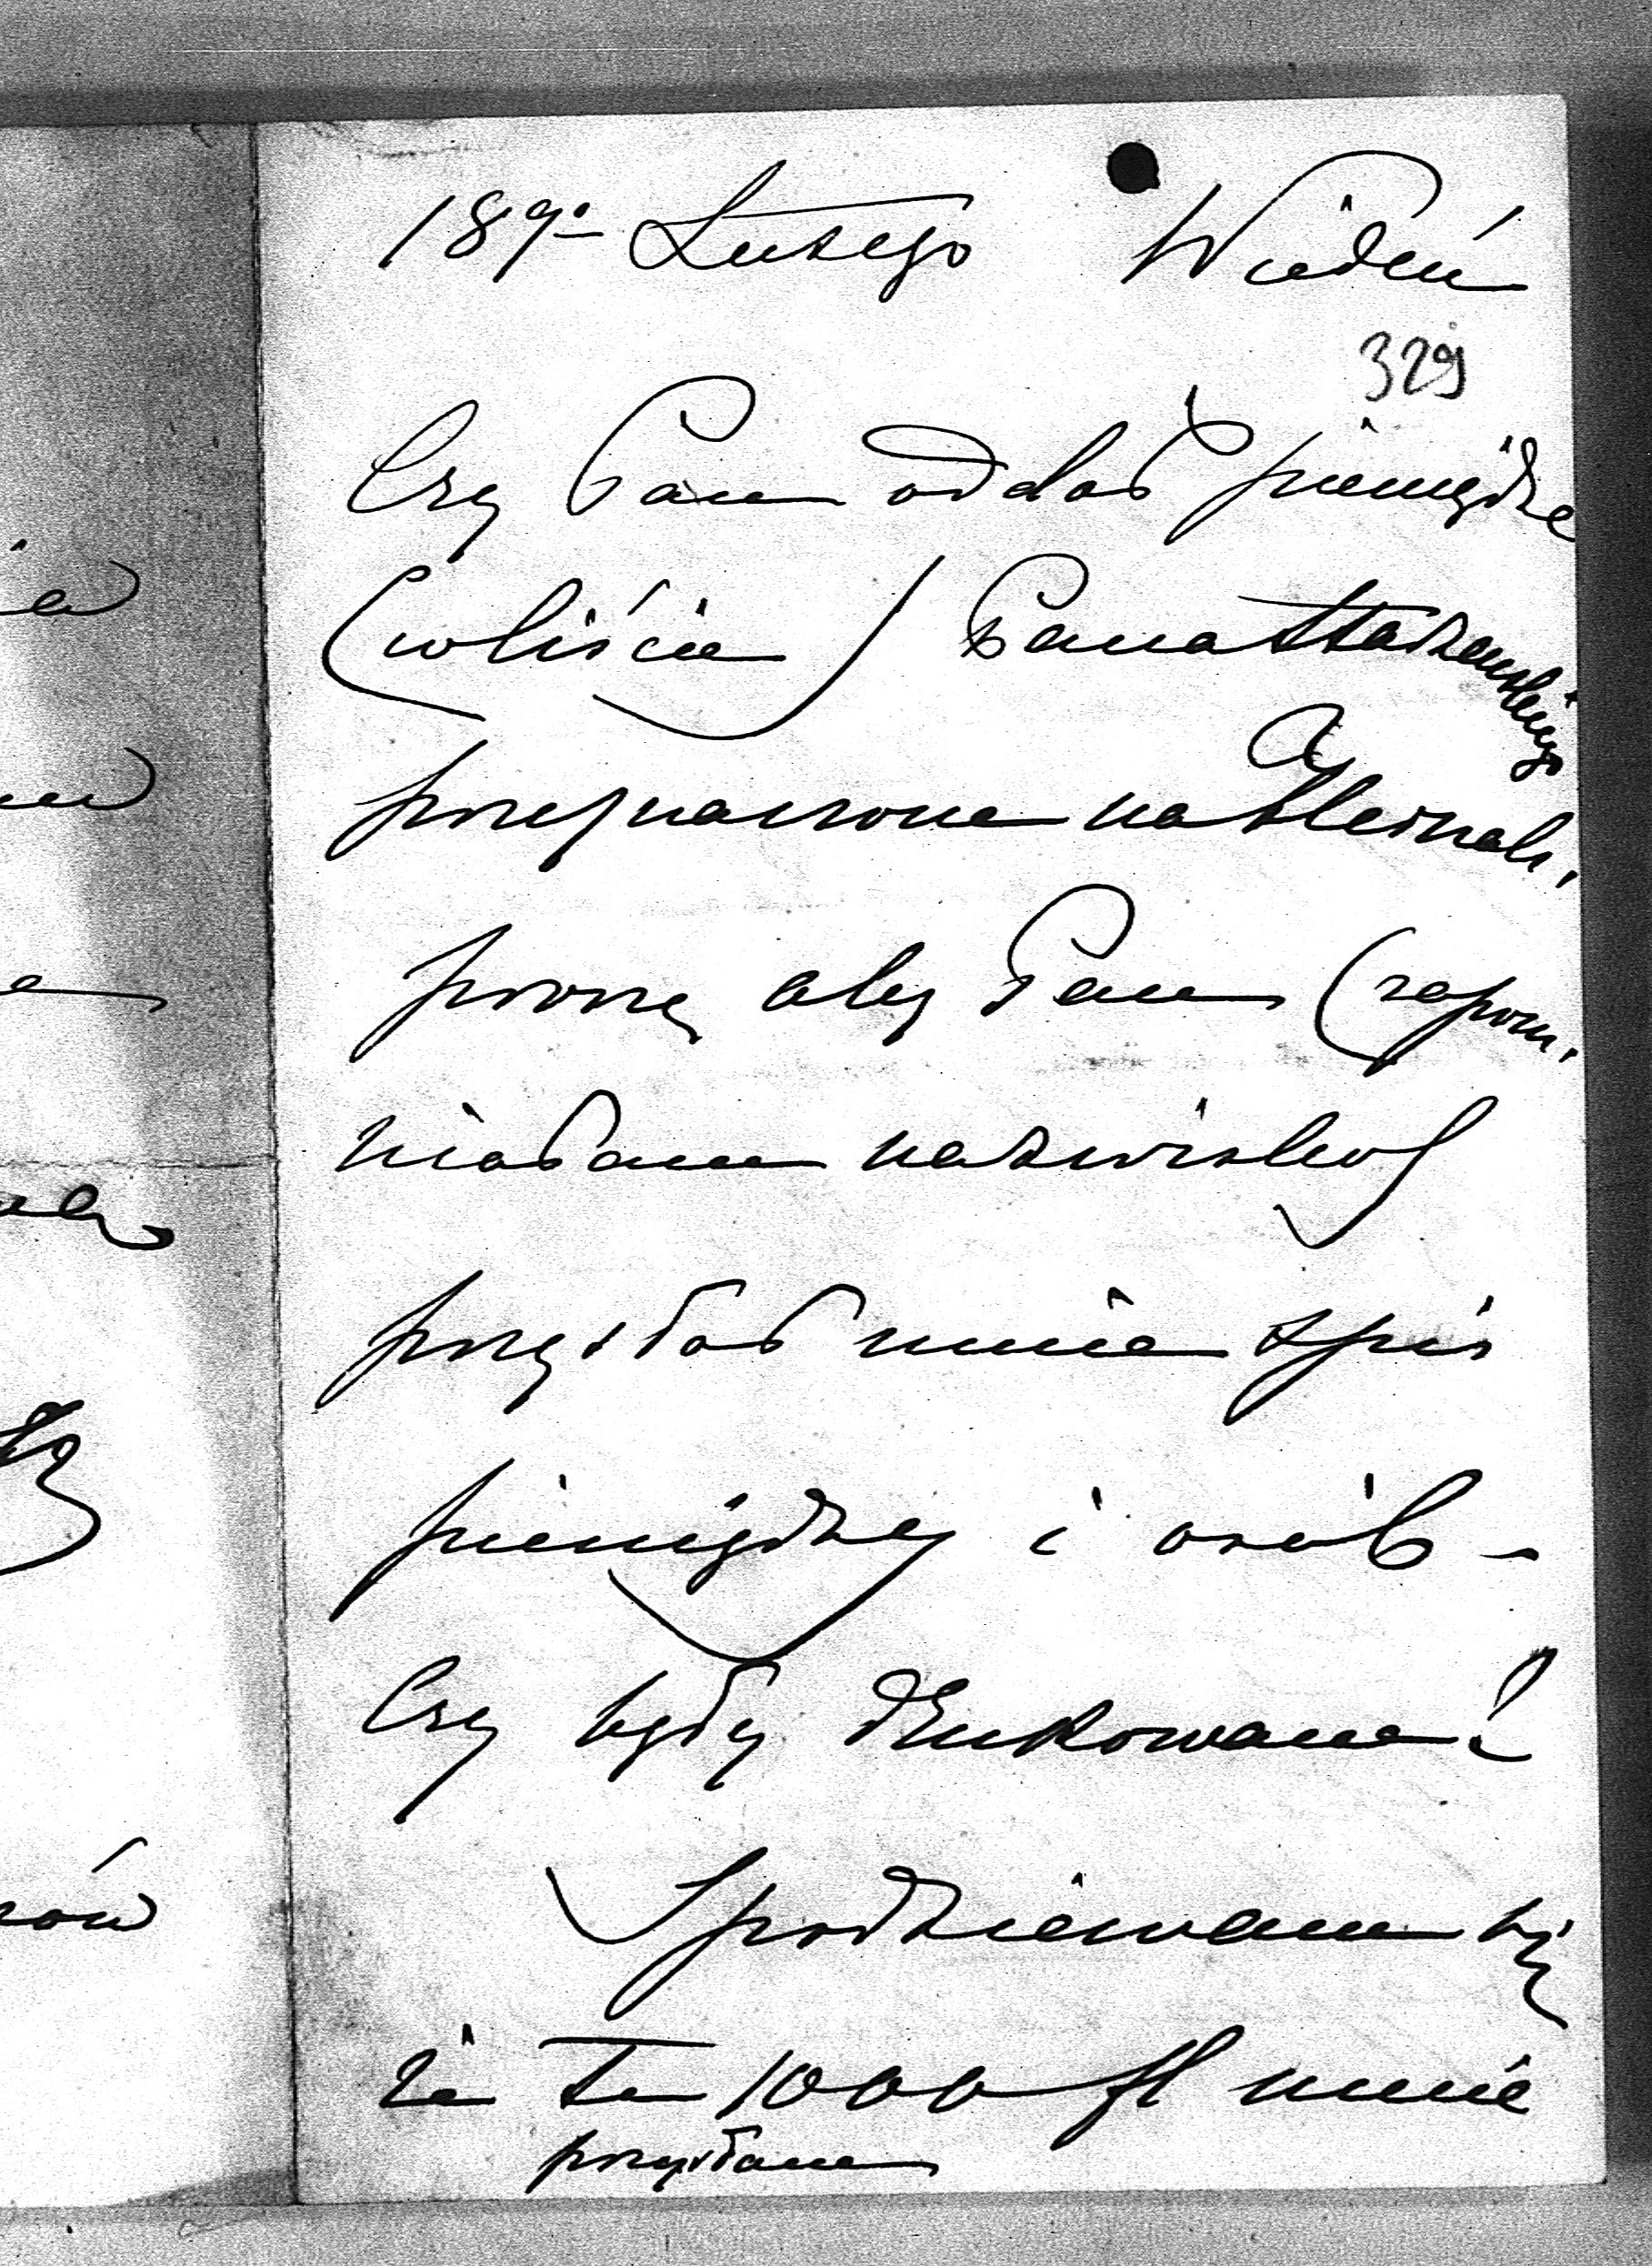 189º Lutego Wiedeń
329
Czy Pan oddał pieniądze
(w liście) Pana
przeznaczone na
proszę aby Pan (zapom,
niałam nazwisko)
przysłał mnie spis
pieniędzy i osób -
Czy były drukowane?
Spodziewam się
że te 1000 fl mnie
przysłane